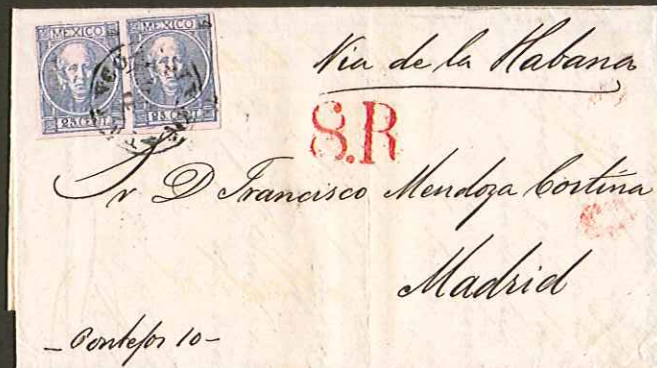 MEXICO MEXICO
25 CENT. 25 CENT.
Via de la Habana
S.R
Sr D Francisco Mendoza Cortina
Madrid
- Pontejos 10 -